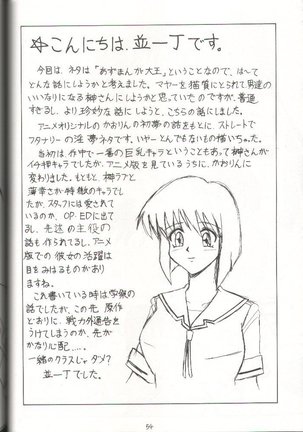 ☆こんにちは、並一丁です。
今回は、ネタは「あずまんが大王」ということなので、は〜て
どんな話にしようかと考えました。マヤーを猫質にとられて男達の
いいなりになる榊さんにしようかと思っていたのですが、普通
すぎるし、より珍妙な話にしようと、こちらの話にしました。
アニメオリジナルのかおりんの初夢の話をもとに、ストレートで
フタナリーの淫夢ネタです。いやーとんでもないもの描いちゃった。
当初は、作中で一番の巨乳キャラということもあって榊さんが
イチ押キャラでしたが、アニメ版を見ているうちに、かおりんに
変わりました。もともと、榊ラブと
薄幸さが特徴のキャラでし
たが、スタッフには愛されて
いるのか、OP、EDに出て
るし、先送の主役の
話も作られてるし、アニメ
版での彼女の活躍は
目をみはるものがあり
ますね。
これ書いている時は学祭の
話でしたが、この先原作
どおりに、戦力外通告を
うけてしまうのか、先が
かなり心配・・・・。
一緒のクラスじゃダメ?
並一丁でした。
54